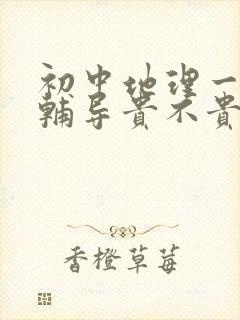 初中地理一
辅导贵不贵
香橙草莓